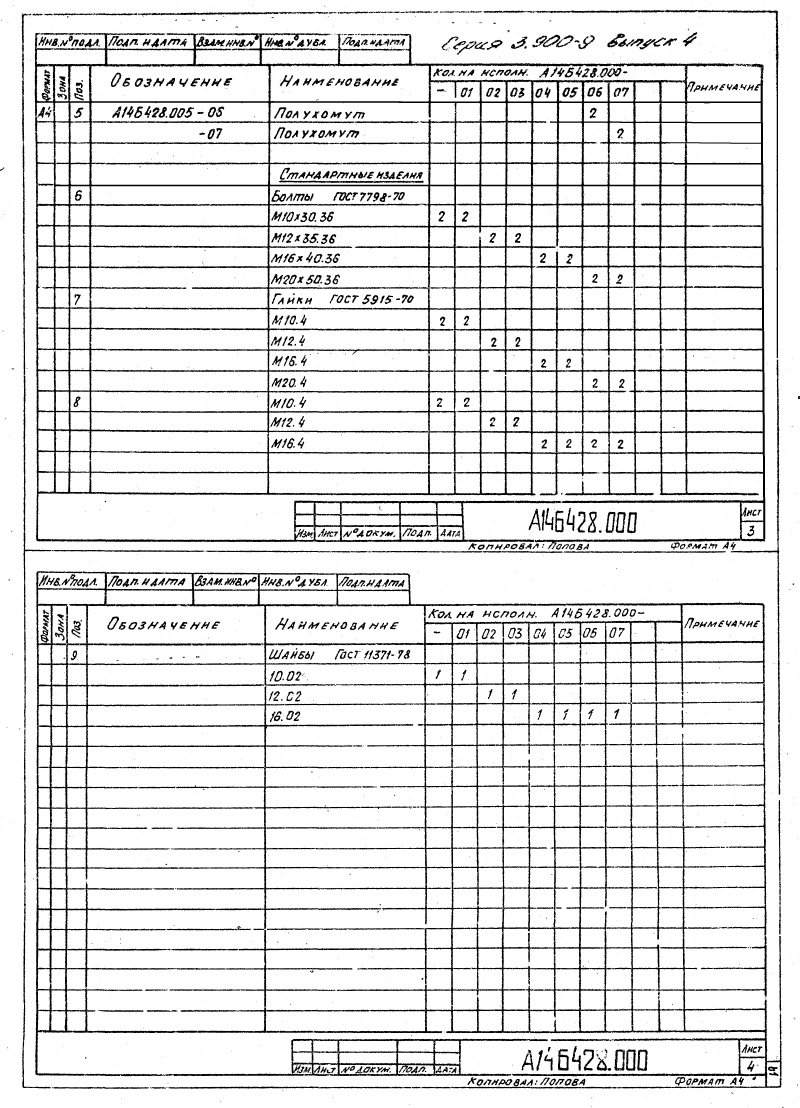 Инв.№подл. Подп. и дата Взам.инв.№ Инв.№дубл. Подп.и дата Серия 3.900-9 Выпуск 4
Формат Зона Поз. Обозначение Наименование Кол. на исполн. А14Б428.000- Примечание
- 01 02 03 04 05 06 07
А4 5 А14Б428.005-06 Полухомут 2
-07 Полухомут 2
Стандартные изделия
6 Болты ГОСТ 7798-70
М10×30.36 2 2
М12×35.36 2 2
М16×40.36 2 2
М20×50.36 2 2
7 Гайки ГОСТ 5915-70
М10.4 2 2
М12.4 2 2
М16.4 2 2
М20.4 2 2
8 М10.4 2 2
М12.4 2 2
М16.4 2 2 2 2
А14Б428.000 Лист
Изм. Лист №докум. Подп. Дата 3
Копировал: Попова Формат А4
Инв.№подл. Подп. и дата Взам.инв.№ Инв.№дубл. Подп.и дата
Формат Зона Поз. Обозначение Наименование Кол. на исполн. А14Б428.000- Примечание
- 01 02 03 04 05 06 07
9 Шайбы ГОСТ 11371-78
10.02 1 1
12.02 1 1
16.02 1 1 1 1
А14Б428.000 Лист
Изм. Лист №докум. Подп. Дата 4
Копировал: Попова Формат А4